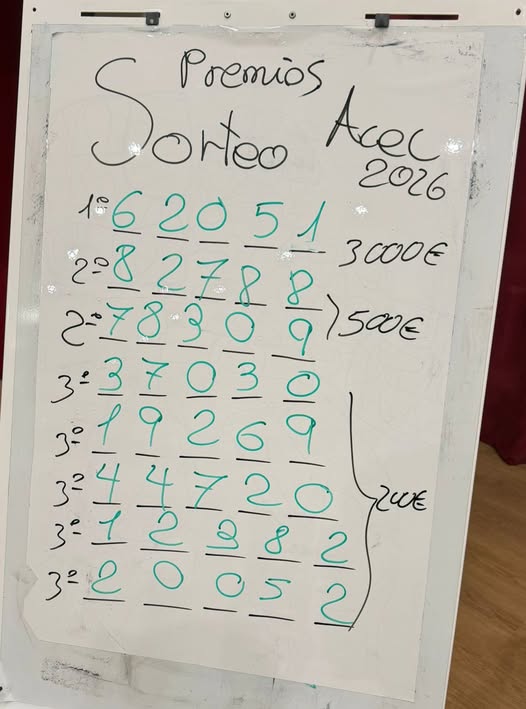 Premios
Sorteo Acec
2026
1º 6 2 0 5 1 3000€
2º 8 2 7 8 8
2º 7 8 3 0 9 500€
3º 3 7 0 3 0
3º 1 9 2 6 9
3º 4 4 7 2 0 200€
3º 1 2 3 8 2
3º 2 0 0 5 2